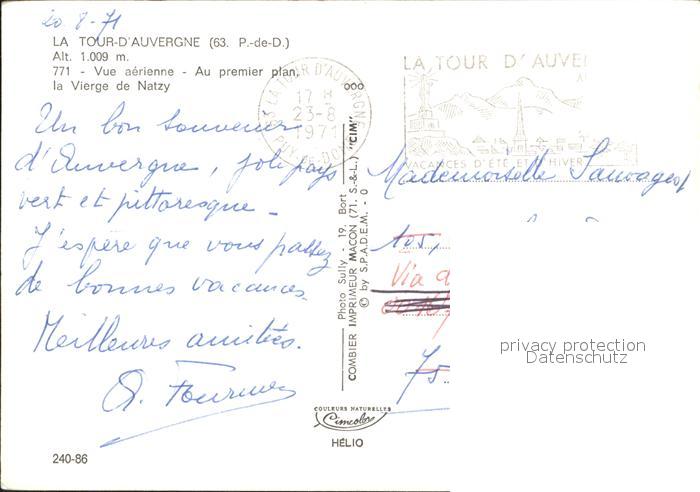 20-8-71
LA TOUR-D'AUVERGNE (63. P.-de-D.)
Alt. 1.009 m.
771 - Vue aérienne - Au premier plan,
la Vierge de Natzy
63 LA TOUR D'AUVERGNE
17 H
23-8
1971
PUY-DE-DOME
LA TOUR D'AUVE
VACANCES D'ÉTÉ ET D'HIVER
Un bon souvenir
d'Auvergne, joli pays
vert et pittoresque -
J'espère que vous passez
de bonnes vacances.
Meilleures amitiés.
Photo Sully - 19. Bort
COMBIER IMPRIMEUR MACON (71. S.-&-L.) "CIM"
© by S.P.A.D.E.M. - 0
Mademoiselle Sauvageot
105,
Via
75
privacy protection
Datenschutz
COULEURS NATURELLES
Cimcolor
HÉLIO
240-86